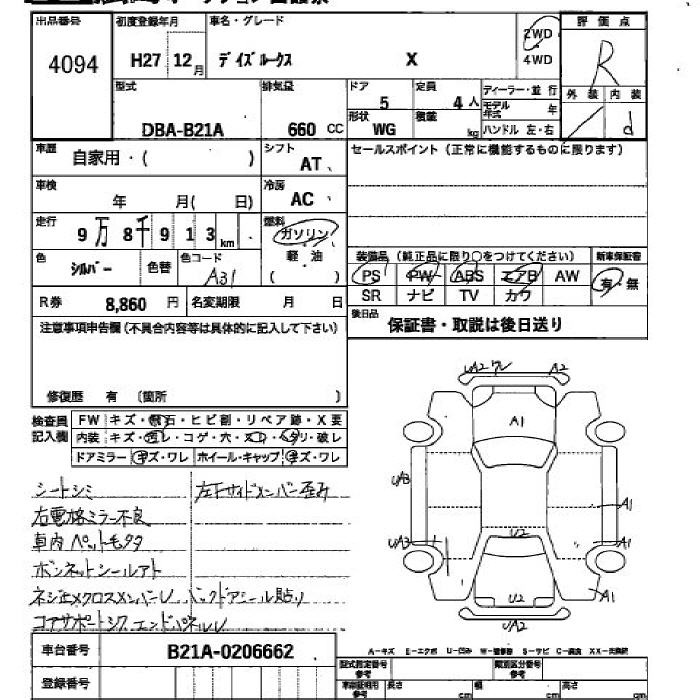 出品番号 初度登録年月 車名・グレード 評価点
4094 H27 12月 デイズルークス X 2WD 4WD R
外装 内装
d
型式 排気量 ドア 定員 ディーラー・並行
DBA-B21A 660 CC 5 4人 モデル年式 年
形状 積載 ハンドル 左・右
WG kg
車歴 自家用・( ) シフト AT、 セールスポイント(正常に機能するものに限ります)
車検 年 月( 日) 冷房 AC、
走行 9万8千913km 燃料 ガソリン
軽・油
( )
色 シルバー 色替 色コード A31
装備品(純正品に限り○をつけてください) 新車保証書
PS PW ABS エアB AW 有・無
SR ナビ TV カワ
R券 8,860円 名変期限 月 日
後日品 保証書・取説は後日送り
注意事項申告欄(不具合内容等は具体的に記入して下さい)
修復歴 有 〔箇所 〕
検査員記入欄 FW キズ・飛石・ヒビ割・リペア跡・X要
内装 キズ・汚レ・コゲ・穴・スレ・ヘタリ・破レ
ドアミラー キズ・ワレ ホイール・キャップ キズ・ワレ
シートシミ 左サイドメンバー歪み
右電格ミラー不良
車内ペットモタタ
ボンネットシールアト
ネジ止メクロスメンバーレ バックドアシール貼り
コアサポートシワ エンドパネルレ
UA2 ワレ A2
A1
UA3
UA3
A1
A1
A1
U2
U2
UA2
車台番号 B21A-0206662
登録番号
A-キズ E-エクボ U-凹み W-補修跡 S-サビ C-腐食 XX-交換跡
型式指定番号 類別区分番号
車庫証明用参考 長さ cm 幅 cm 高さ cm